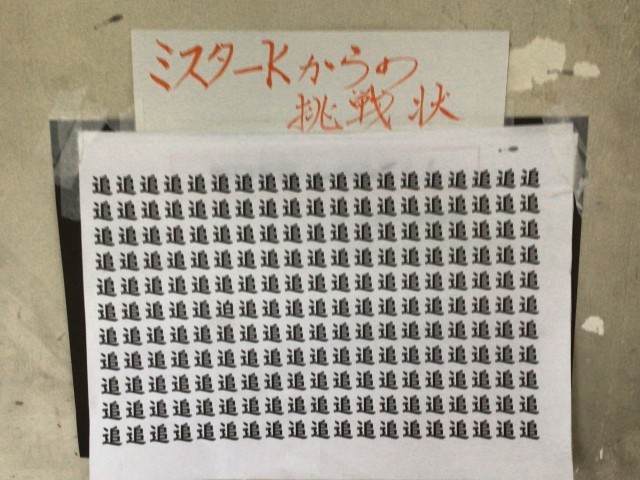 ミスターKからの
挑戦状
追追追追追追追追追追追追追追追追追追追
追追追追追追追追追追追追追追追追追追追
追追追追追追追追追追追追追追追追追追追
追追追追追追追追追追追追追追追追追追追
追追追追追追追追追追追追追追追追追追追
追追追追追迫追追追追追追追追追追追追追
追追追追追追追追追追追追追追追追追追追
追追追追追追追追追追追追追追追追追追追
追追追追追追追追追追追追追追追追追追追
追追追追追追追追追追追追追追追追追追追
追追追追追追追追追追追追追追追追追追追